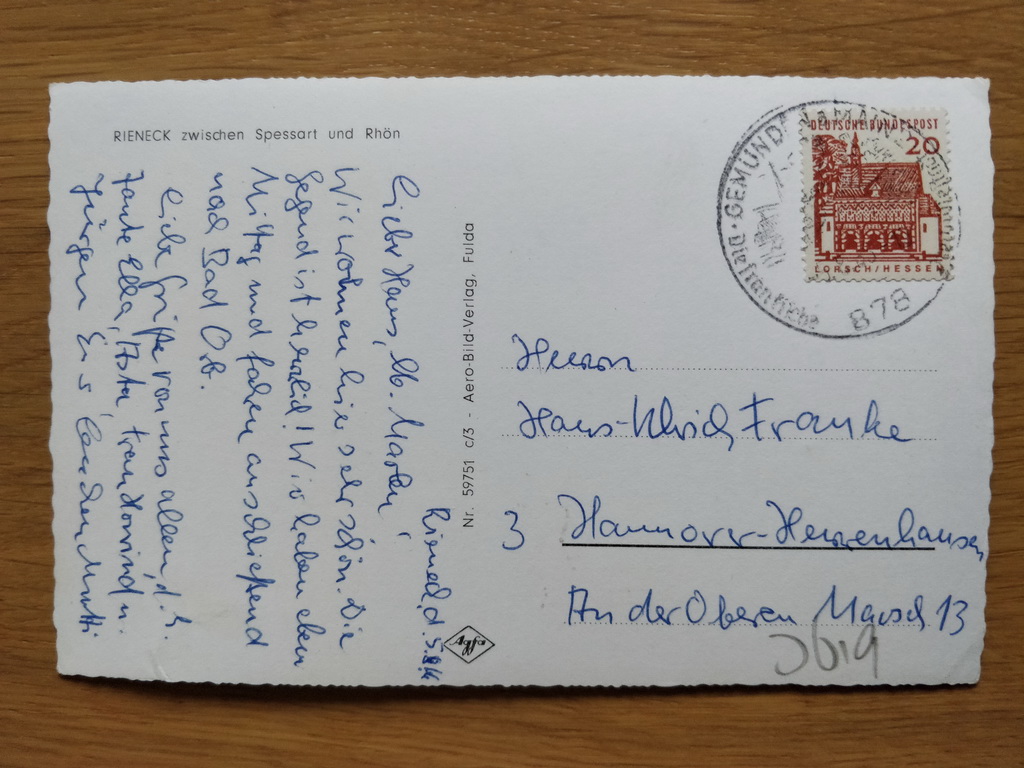 RIENECK zwischen Spessart und Rhön
Rieneck, d. 5.8.
Lieber Hans,
Wir wohnen hier sehr schön. Die
Gegend ist herrlich! Wir haben eben
Mittag und fahren anschließend
nach Bad Orb.
Liebe Grüße von uns allen, d. h.
Tante Ella, Asta, Frau u.
Jürgen
Nr. 59751 c/3 - Aero-Bild-Verlag, Fulda
Agfa
GEMÜNDEN a MAIN
878
DEUTSCHE BUNDESPOST
20
LORSCH/HESSEN
Herrn
Hans-Ulrich Franke
3 Hannover-Herrenhausen
An der Oberen Marsch 13